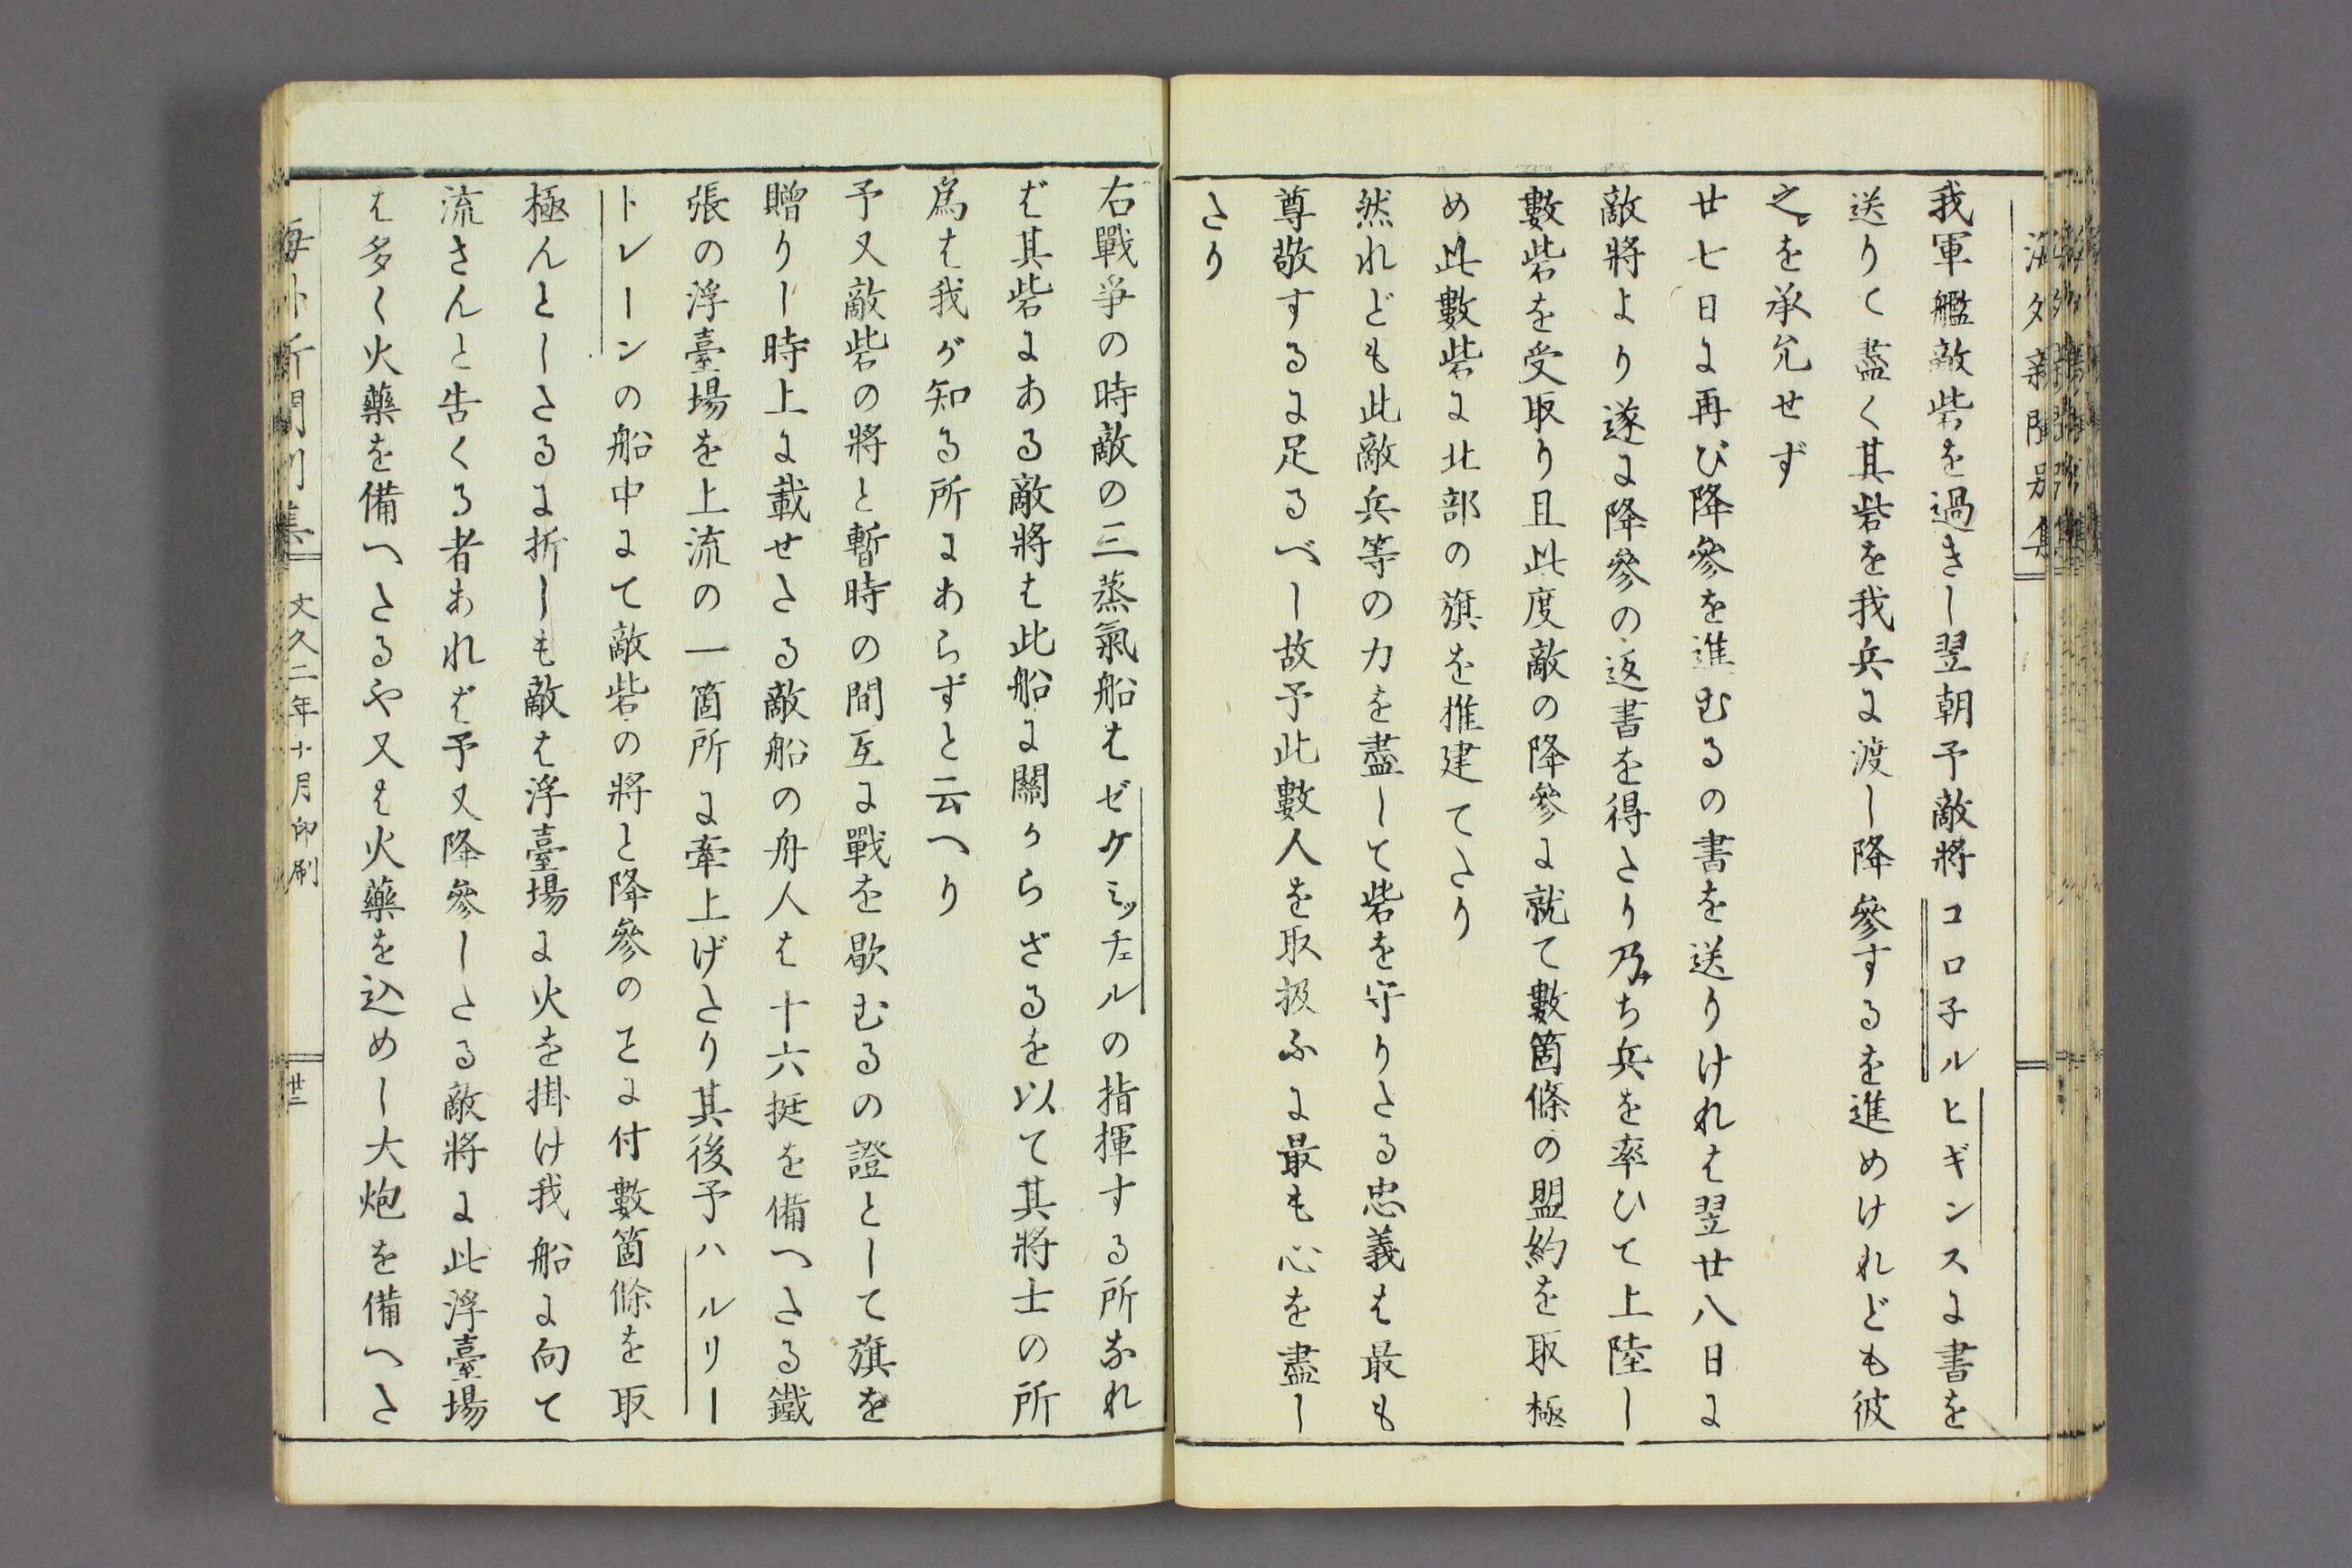 海外新聞別集
我軍艦敵砦を過きし翌朝予敵將コロ子ルヒギンスに書を
送りて盡く其砦を我兵に渡し降參するを進めけれども彼
之を承允せず
廿七日に再び降參を進むるの書を送りけれは翌廿八日に
敵將より遂に降參の返書を得たり乃ち兵を率ひて上陸し
數砦を受取り且此度敵の降參に就て數箇條の盟約を取極
め此數砦に北部の旗を推建てたり
然れども此敵兵等の力を盡して砦を守りたる忠義は最も
尊敬するに足るべし故予此數人を取扱ふに最も心を盡し
たり
右戰爭の時敵の三蒸氣船はゼケミッチェルの指揮する所なれ
ば其砦にある敵將は此船に關からざるを以て其將士の所
爲は我が知る所にあらずと云へり
予又敵砦の將と暫時の間互に戰を歇むるの證として旗を
贈りし時上に載せたる敵船の舟人は十六挺を備へたる鐵
張の浮臺場を上流の一箇所に牽上げたり其後予ハルリー
トレーンの船中にて敵砦の將と降參のヿに付數箇條を取
極んとしたるに折しも敵は浮臺場に火を掛け我船に向て
流さんと告くる者あれば予又降參したる敵將に此浮臺場
は多く火藥を備へたるや又は火藥を込めし大炮を備へた
海外新聞別集 文久二年十月印刷 廿三